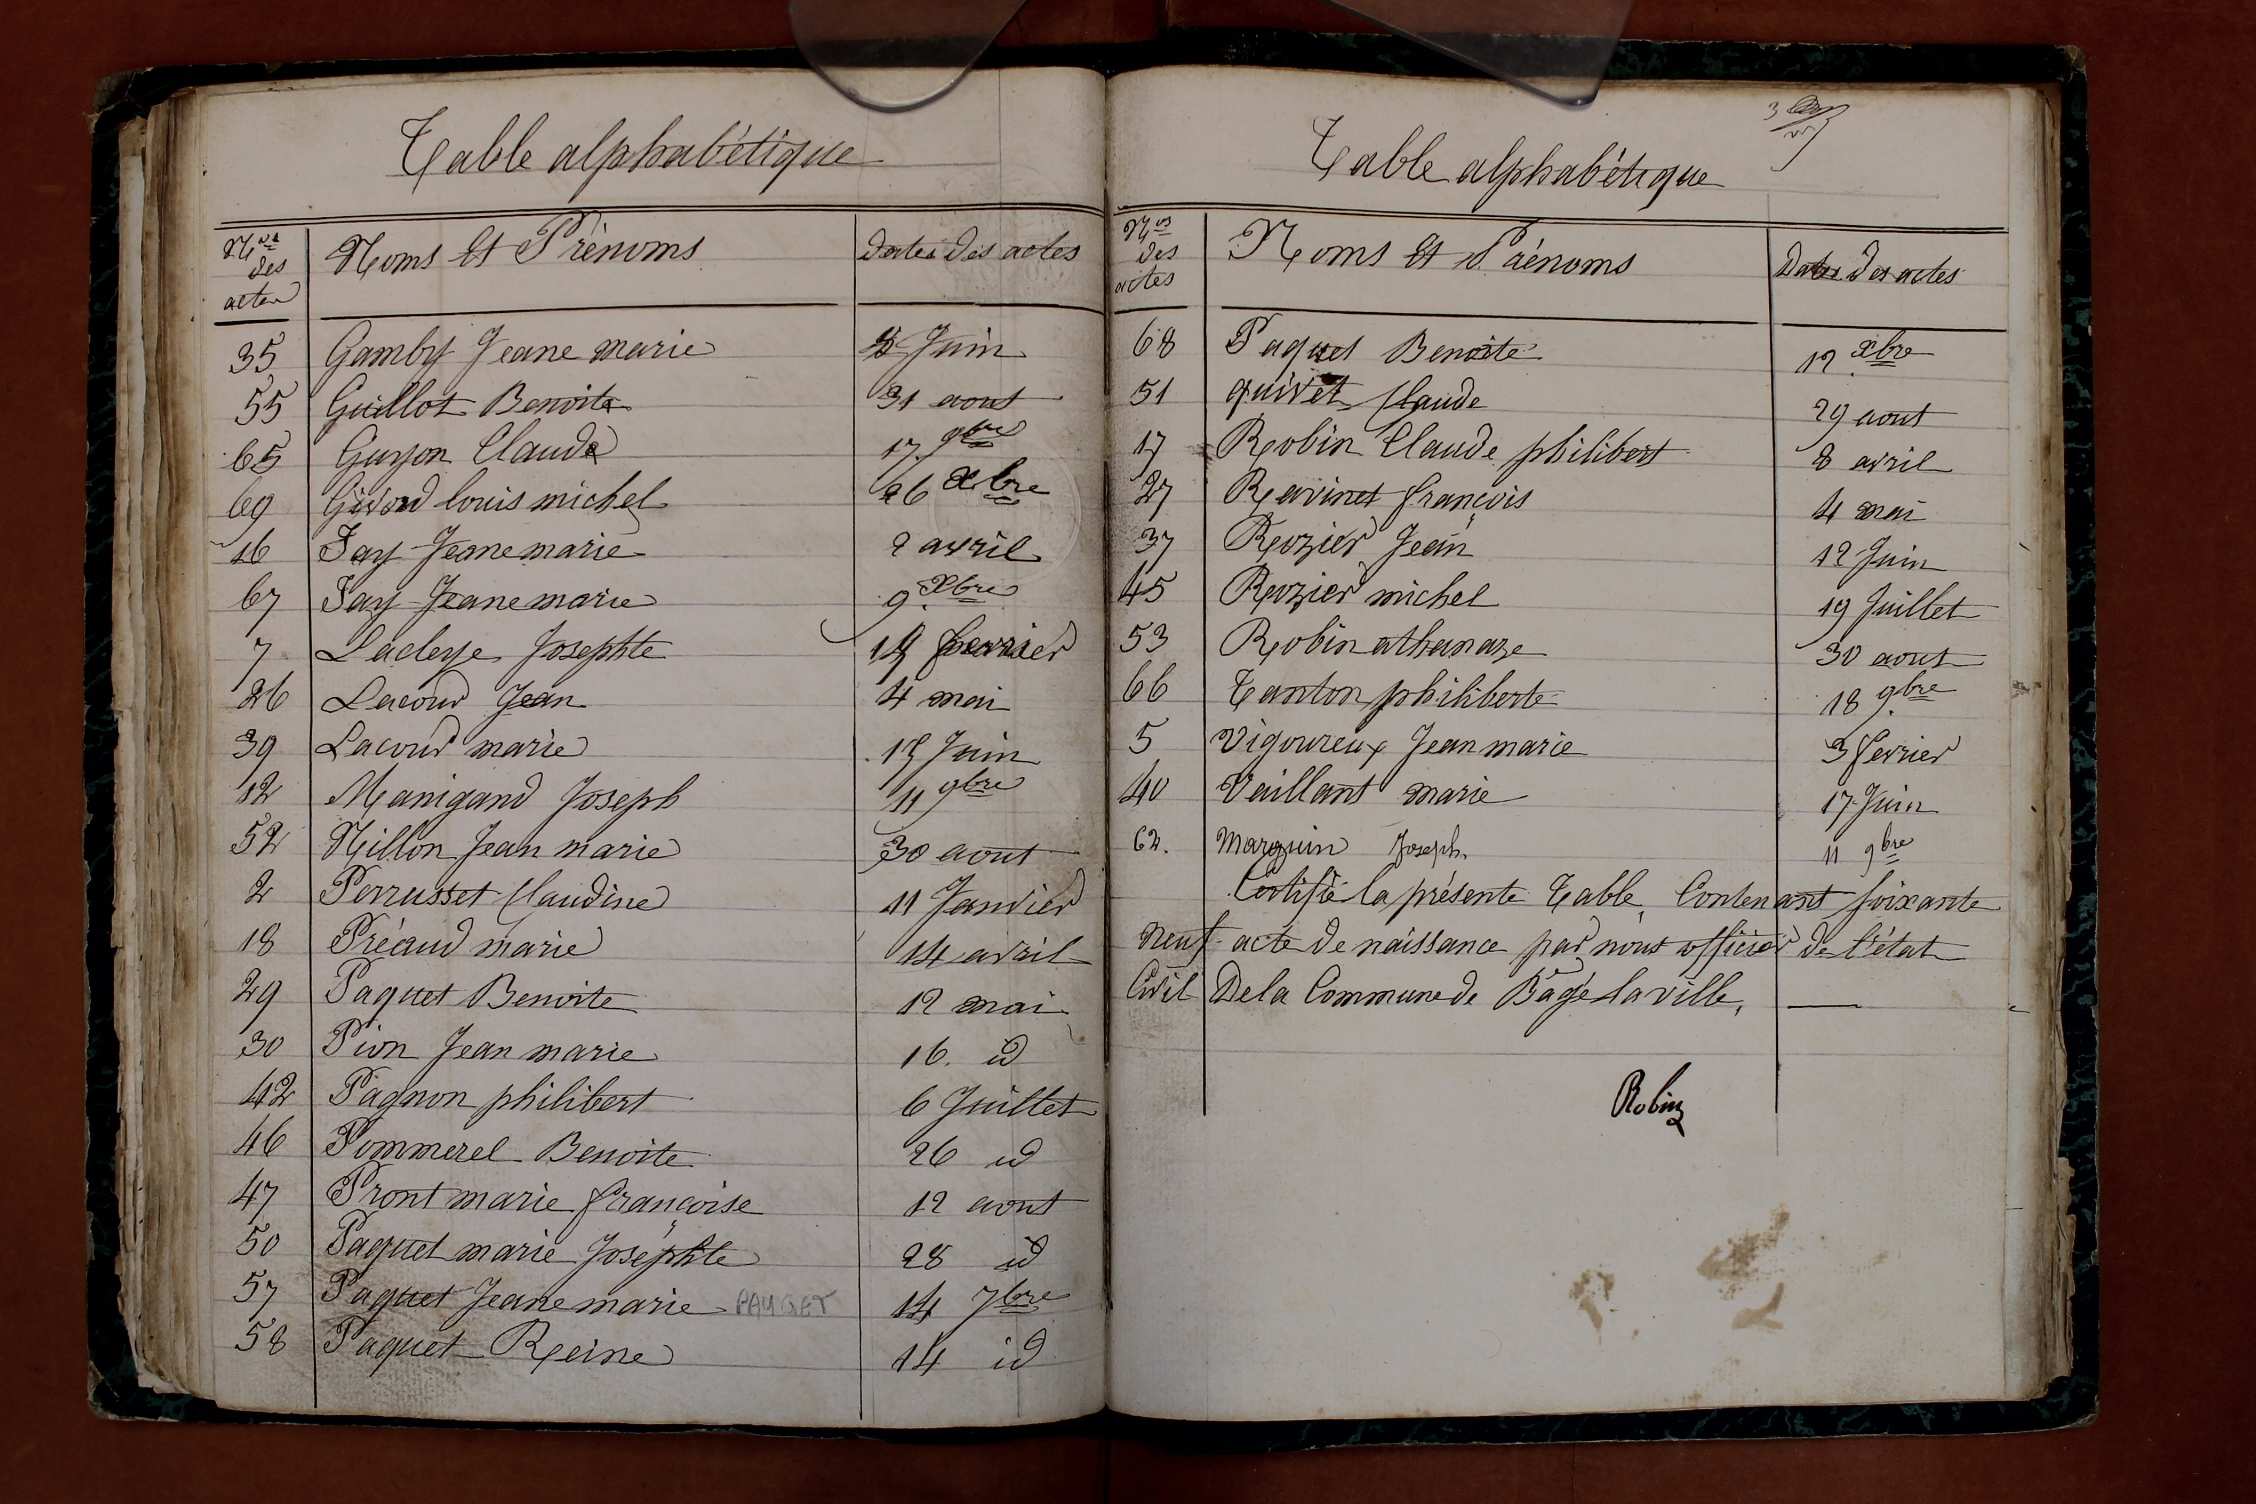 Table alphabétique
Nos des actes Noms et Prénoms Dates des actes
35 Gamby Jeane marie 5 Juin
55 Guillot Benoite 31 aout
65 Guyon Claude 17 9bre
69 Givord louis michel 26 Xbre
16 Jay Jeane marie 2 avril
67 Jay Jeane marie 9 Xbre
7 Lacleye Josephte 19 fevrier
26 Lacour Jean 4 mai
39 Lacour marie 15 Juin
12 Manigand Joseph 11 9bre
52 Nillon Jean marie 30 aout
2 Perrusset Claudine 11 Janvier
18 Préaud marie 14 avril
29 Paquet Benoite 12 mai
30 Pion Jean marie 16. id
42 Pagnon philibert 6 Juillet
46 Pommerel Benoite 26 id
47 Pront marie françoise 12 aout
50 Paquet marie Joséphte 28 id
57 Paquet Jeane marie PAUGET 14 7bre
58 Paquet Reine 14 id
Table alphabétique
Nos des actes Noms et Prénoms Dates des actes
68 Paquet Benoite 12 Xbre
51 quivet Claude 29 aout
17 Robin Claude philibert 8 avril
27 Ravinet françois 4 mai
37 Rozier Jean 12 Juin
45 Rozier michel 19 Juillet
53 Robin athanaze 30 aout
66 Tanton philiberte 18 9bre
5 Vigoureux Jean marie 3 fevrier
40 Vaillant marie 17 Juin
62. Marguin Joseph. 11 9bre
Certifié la présente Table, Contenant soixante
neuf acte de naissance par nous officier de l'état
Civil De la Commune de Bâgé la ville,
Robin